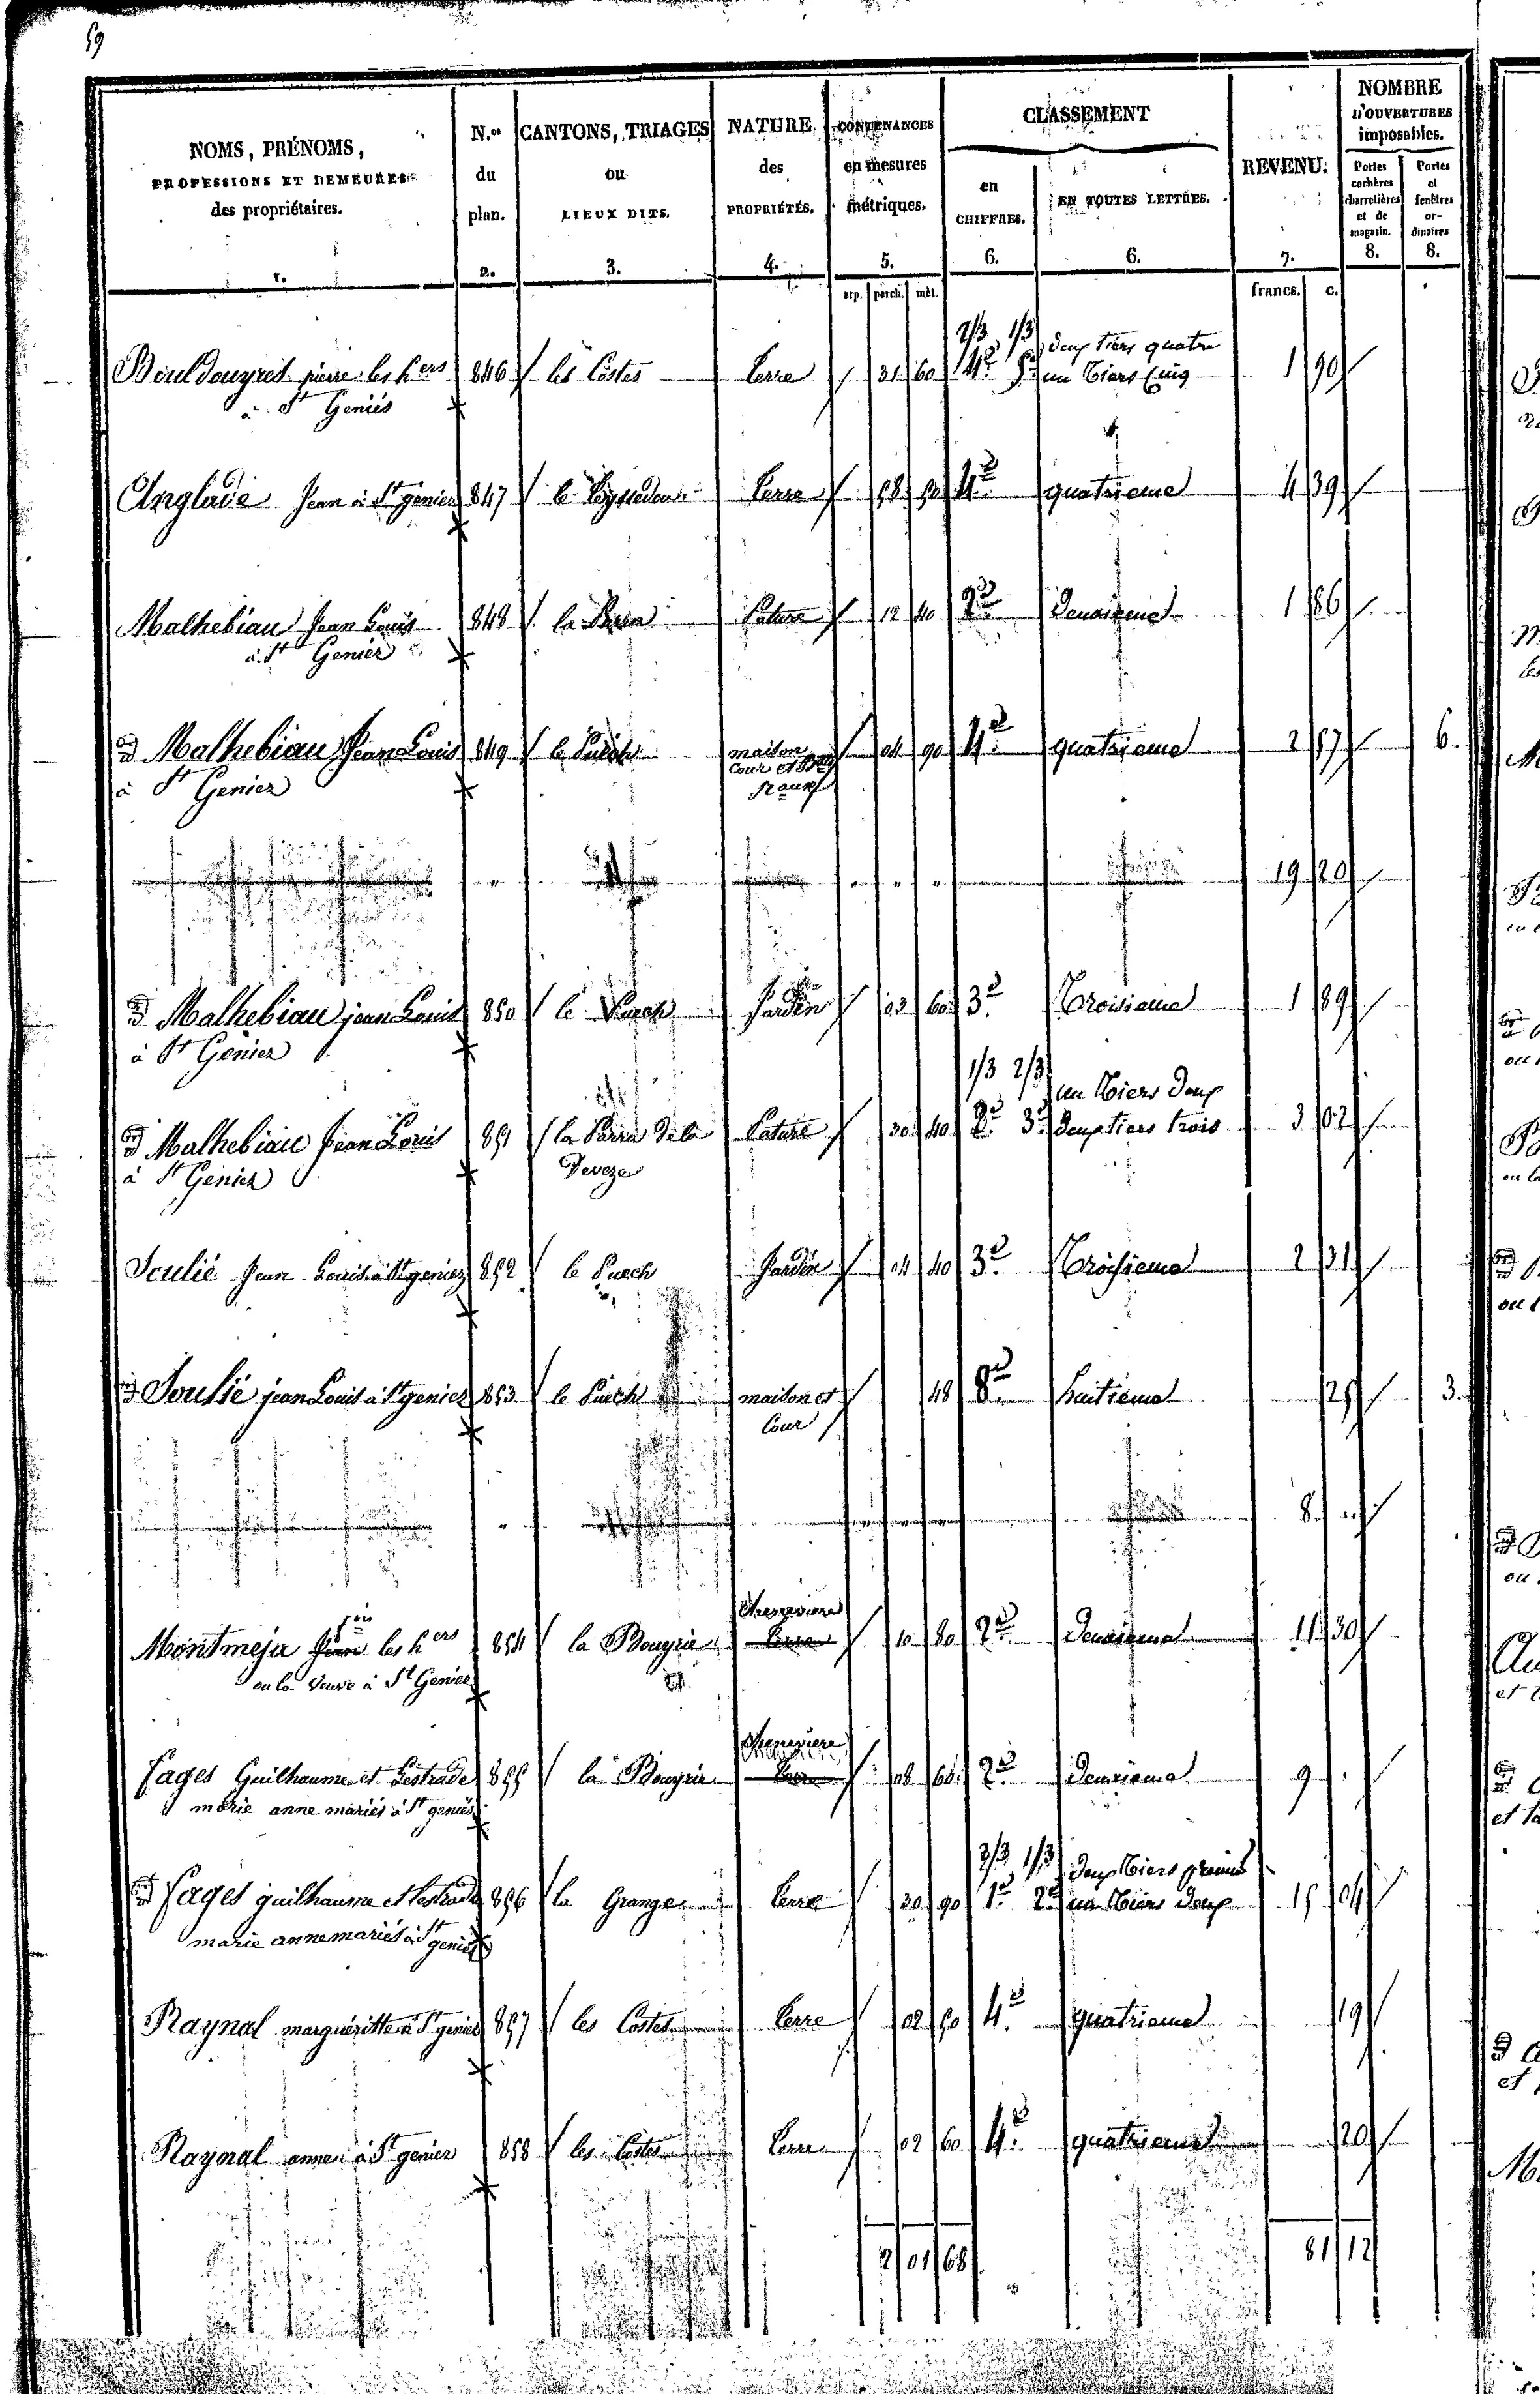 59
NOMS, PRÉNOMS, PROFESSIONS ET DEMEURES des propriétaires. 1.
N.os du plan. 2.
CANTONS, TRIAGES ou LIEUX DITS. 3.
NATURE des PROPRIÉTÉS. 4.
CONTENANCES en mesures métriques. 5.
CLASSEMENT
en CHIFFRES. 6.
EN TOUTES LETTRES. 6.
REVENU. 7.
NOMBRE D'OUVERTURES imposables.
Portes cochères charretières et de magasin. 8.
Portes et fenêtres ordinaires 8.
arp. perch. mèt. francs. c.
2/3 1/3 deux tiers quatre
Bouldouyres pierre les hers 846 les Costes terre 1 31 60 4e 5e un tiers cinq 1 90
à St Geniés
Anglade Jean à St genier 847 le terre 58 50 4e quatrieme 4 39
Malhebiau Jean Louis 848 la Pature 12 40 2e Deuxieme 1 86
à St Genier
d Malhebiau Jean Louis 849 le Puech maison 04 90 4e quatrieme 2 57 6.
à St Genier cour et
19 20
d Malhebiau jean Louis 850 le Puech Jardin 03 60 3e Troisieme 1 89
à St Genier
1/3 2/3 un tiers deux
d Malhebiau Jean Louis 851 la Parra de la Pature 30 40 2e 3e deux tiers trois 3 02
à St Genier Deveze
Soulié Jean Louis à St genier 852 le Puech Jardin 04 40 3e Troisieme 2 31
d Soulié jean Louis à St genier 853 le Puech maison et 48 8e huitieme 25 3.
Cour
8
Cheneviere
Montmeja Jean les hers 854 la Bouyrie terre 10 80 2e Deuxieme 11 30
ou la veuve à St Genier
Cheneviere
Fages Guilhaume et Lestrade 855 la Bouyrie terre 08 60 2e Deuxieme 9
marie anne mariés à St geniés
2/3 1/3 deux tiers premier
d Fages guilhaume et lestrade 856 la Grange terre 30 90 1e 2e un tiers deux 15 04
marie anne mariés à St geniés
Raynal marguéritte à St genier 857 les Costes terre 02 50 4e quatrieme 19
Raynal anne à St genier 858 les Costes terre 02 60 4e quatrieme 20
2 01 68 81 12